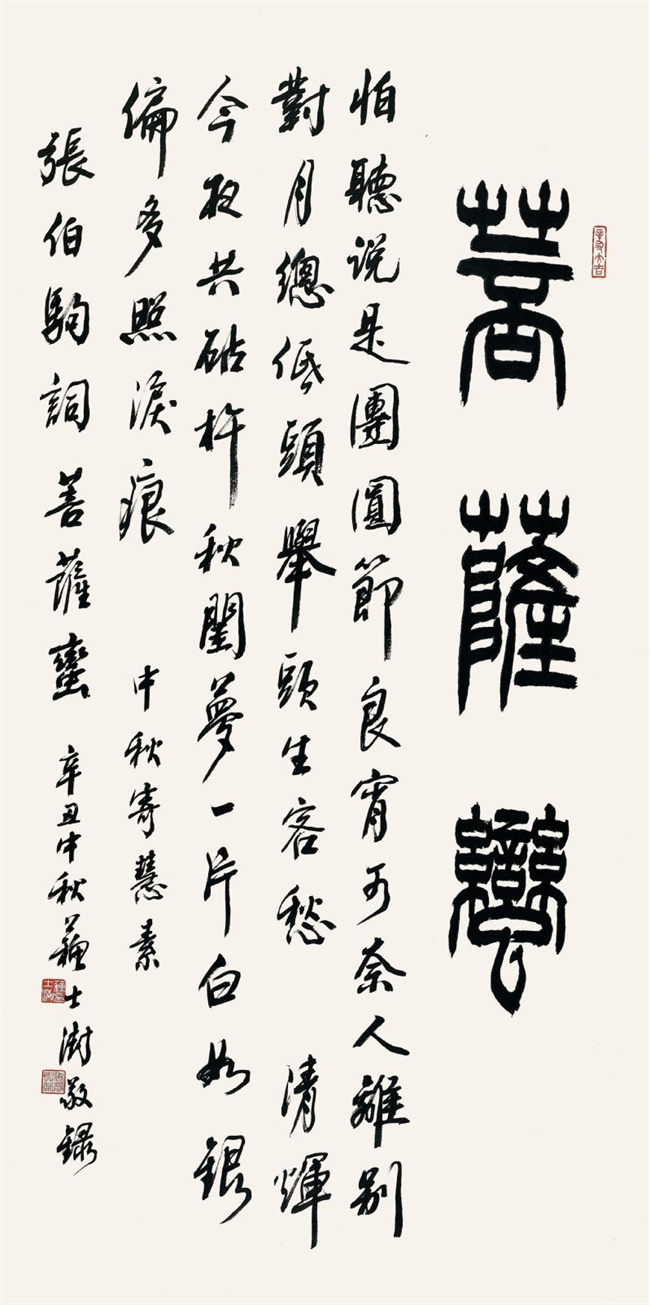 菩薩蠻
怕聽説是團圓節良宵可奈人離別
對月總低頭舉頭生客愁 清煇
今夜共砧杵秋閨夢一片白如銀
偏多照淚痕 中秋寄慧素
張伯駒詞菩薩蠻 辛丑中秋蘇士澍敬錄